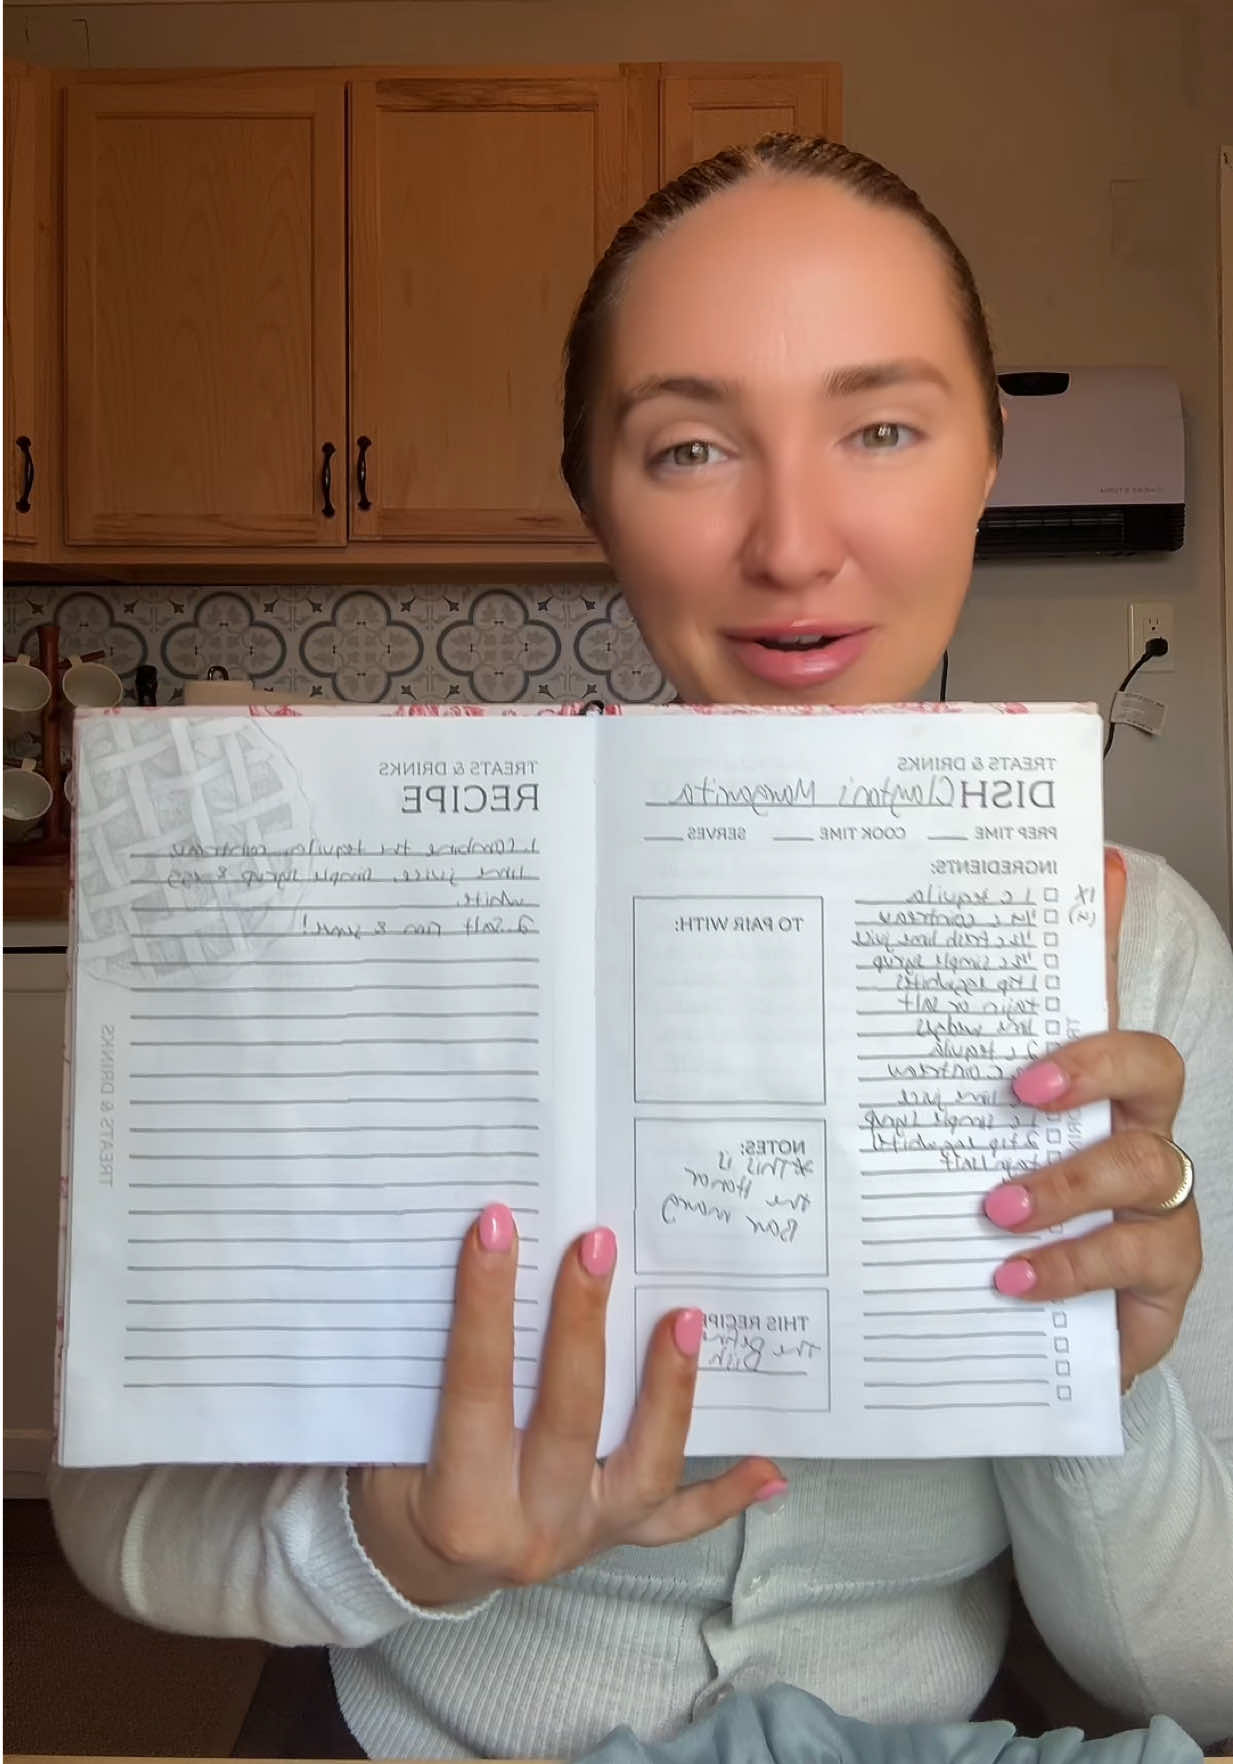 TREATS & DRINKS
DISH Clayton's Margarita
PREP TIME COOK TIME SERVES
INGREDIENTS:
X1 1 c tequila
1/2 c cointreau
1/2 c fresh lime juice
1/2 c simple syrup
1 tsp egg whites
tajin or salt
lime wedges
2 c tequila
c cointreau
c lime juice
1 c simple syrup
2 tsp egg whites
tajin/salt
TO PAIR WITH:
NOTES:
*This is
the Honor
Bar marg
THIS RECIPE
The
Dish
TREATS & DRINKS
RECIPE
1. Combine the tequila, cointreau
lime juice, simple syrup & egg
white.
2. Salt rim & serve!
TREATS & DRINKS